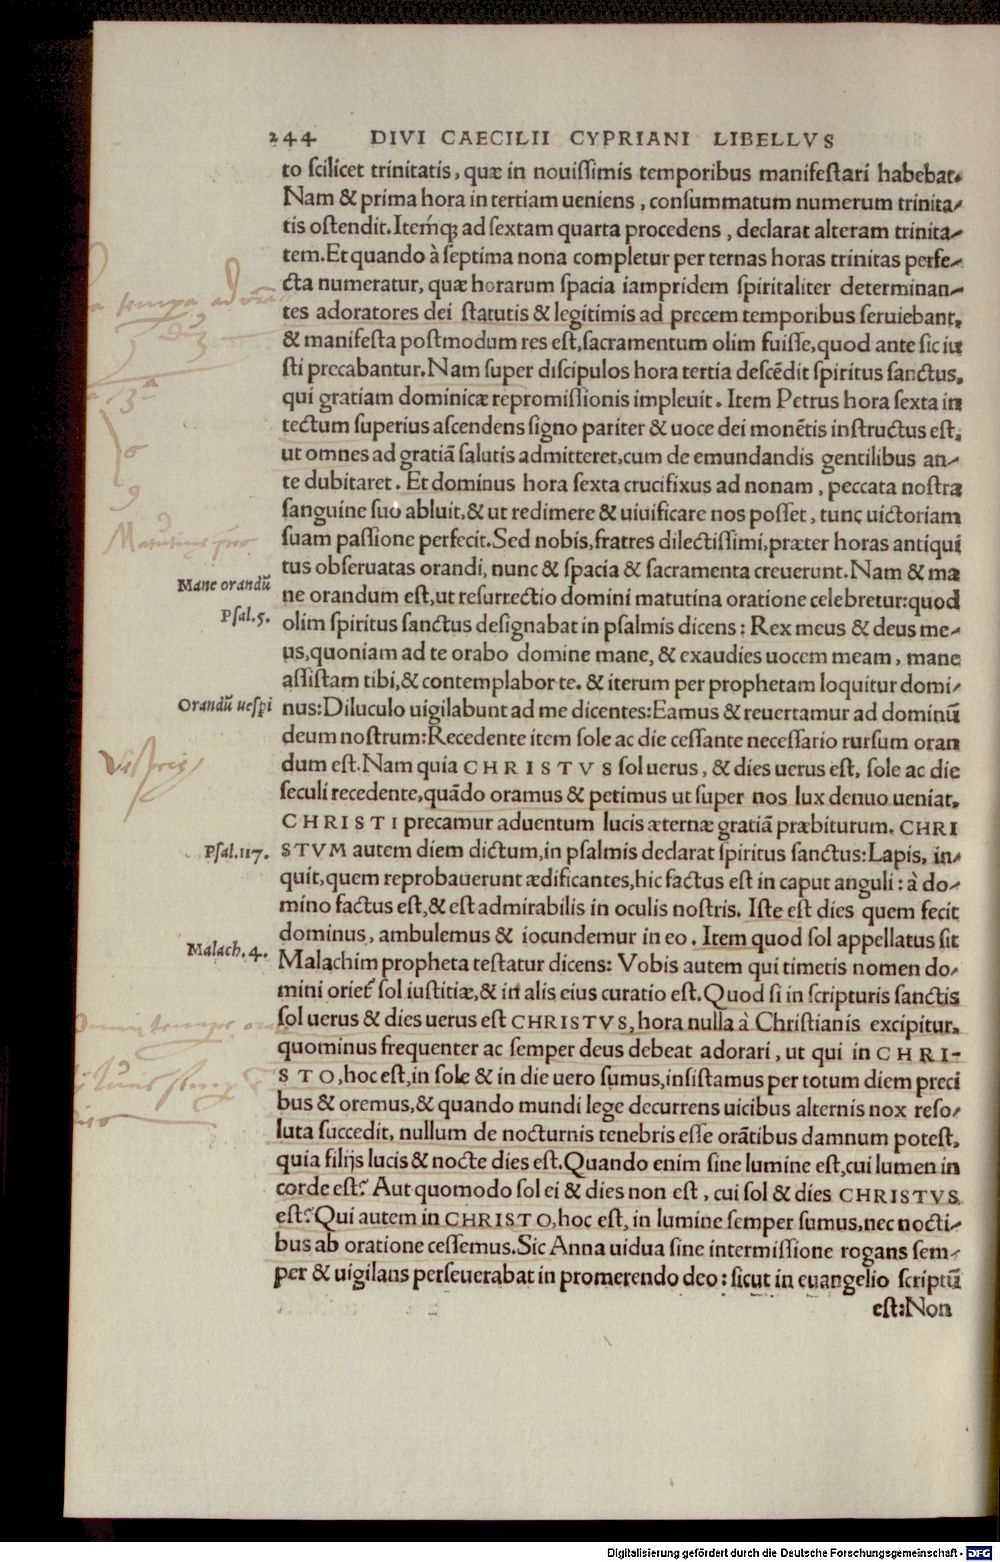 244 DIVI CAECILII CYPRIANI LIBELLVS
to scilicet trinitatis, quæ in nouissimis temporibus manifestari habebat.
Nam & prima hora in tertiam ueniens, consummatum numerum trinita-
tis ostendit. Itemq́; ad sextam quarta procedens, declarat alteram trinita-
tem. Et quando à septima nona completur per ternas horas trinitas perfe-
cta numeratur, quæ horarum spacia iampridem spiritaliter determinan-
tes adoratores dei statutis & legitimis ad precem temporibus seruiebant,
& manifesta postmodum res est, sacramentum olim fuisse, quod ante sic iu
sti precabantur. Nam super discipulos hora tertia descēdit spiritus sanctus,
qui gratiam dominicæ repromissionis impleuit. Item Petrus hora sexta in
tectum superius ascendens signo pariter & uoce dei monētis instructus est,
ut omnes ad gratiā salutis admitteret, cum de emundandis gentilibus an-
te dubitaret. Et dominus hora sexta crucifixus ad nonam, peccata nostra
sanguine suo abluit, & ut redimere & uiuificare nos posset, tunc uictoriam
suam passione perfecit. Sed nobis, fratres dilectissimi, præter horas antiqui
tus obseruatas orandi, nunc & spacia & sacramenta creuerunt. Nam & ma
Mane orandū
ne orandum est, ut resurrectio domini matutina oratione celebretur: quod
Psal. 5.
olim spiritus sanctus designabat in psalmis dicens: Rex meus & deus me-
us, quoniam ad te orabo domine mane, & exaudies uocem meam, mane
assistam tibi, & contemplabor te. & iterum per prophetam loquitur domi-
Orandū uespi
nus: Diluculo uigilabunt ad me dicentes: Eamus & reuertamur ad dominū
deum nostrum: Recedente item sole ac die cessante necessario rursum oran
dum est. Nam quia CHRISTVS sol uerus, & dies uerus est, sole ac die
seculi recedente, quādo oramus & petimus ut super nos lux denuo ueniat,
CHRISTI precamur aduentum lucis æternæ gratiā præbiturum. CHRI
Psal. 117.
STVM autem diem dictum, in psalmis declarat spiritus sanctus: Lapis, in-
quit, quem reprobauerunt ædificantes, hic factus est in caput anguli: à do-
mino factus est, & est admirabilis in oculis nostris. Iste est dies quem fecit
dominus, ambulemus & iocundemur in eo. Item quod sol appellatus sit
Malach. 4.
Malachim propheta testatur dicens: Vobis autem qui timetis nomen do-
mini oriet᷑ sol iustitiæ, & in alis eius curatio est. Quod si in scripturis sanctis
sol uerus & dies uerus est CHRISTVS, hora nulla à Christianis excipitur,
quominus frequenter ac semper deus debeat adorari, ut qui in CHRI-
STO, hoc est, in sole & in die uero sumus, insistamus per totum diem preci
bus & oremus, & quando mundi lege decurrens uicibus alternis nox reso-
luta succedit, nullum de nocturnis tenebris esse orātibus damnum potest,
quia filijs lucis & nocte dies est. Quando enim sine lumine est, cui lumen in
corde est? Aut quomodo sol ei & dies non est, cui sol & dies CHRISTVS
est? Qui autem in CHRISTO, hoc est, in lumine semper sumus, nec nocti-
bus ab oratione cessemus. Sic Anna uidua sine intermissione rogans sem-
per & uigilans perseuerabat in promerendo deo: sicut in euangelio scriptū
est: Non
Digitalisierung gefördert durch die Deutsche Forschungsgemeinschaft - DFG